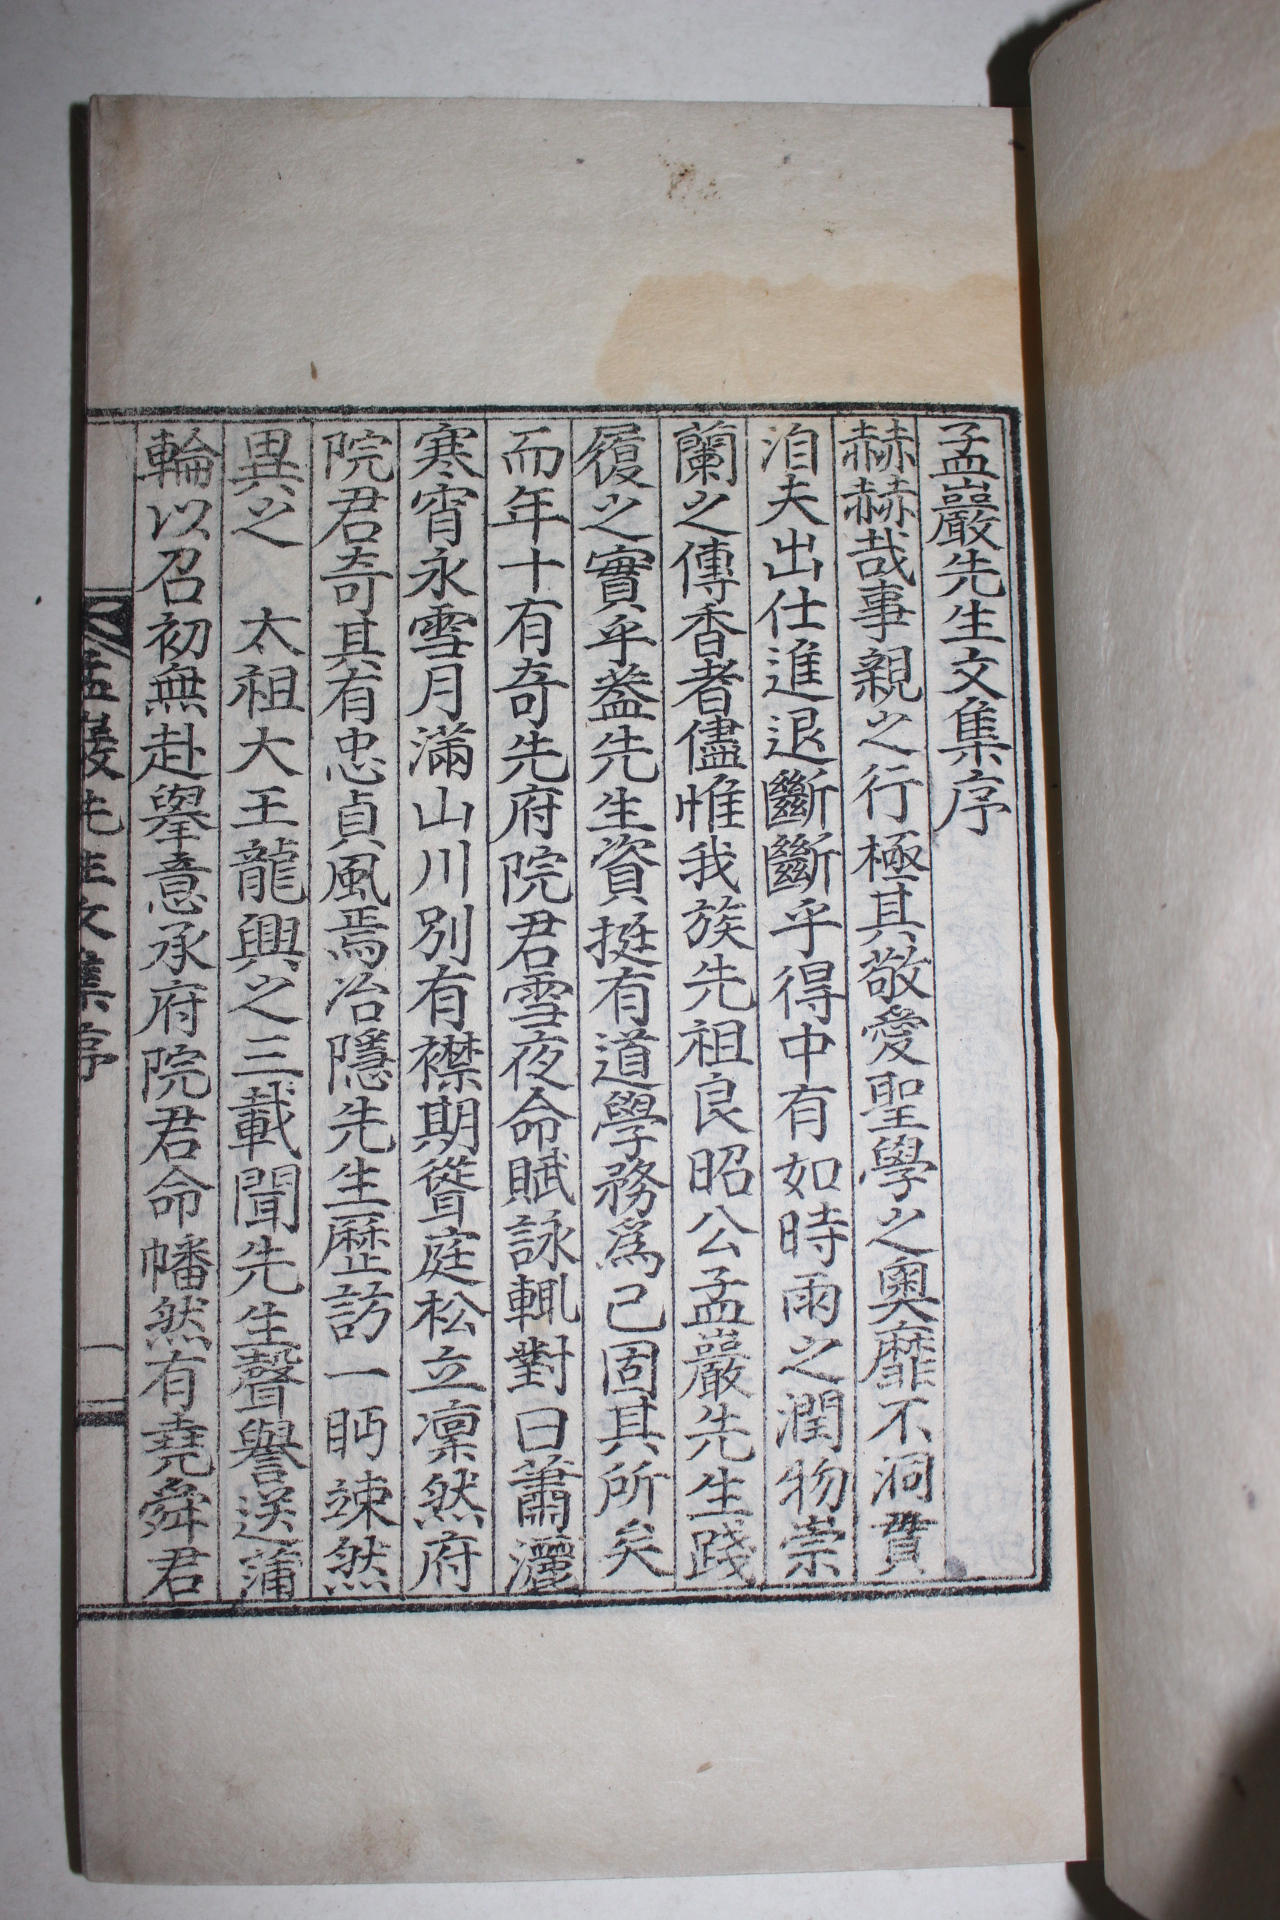 孟巖先生文集序
赫赫哉事親之行極其敬愛聖學之奧靡不洞貫
洎夫出仕進退斷斷乎得中有如時雨之潤物崇
蘭之傳香者儘惟我族先祖良昭公孟巖先生踐
履之實乎蓋先生資挺有道學務爲己固其所矣
而年十有奇先府院君雪夜命賦詠輒對曰蕭灑
寒宵永雪月滿山川別有襟期聳庭松立凜然府
院君奇其有忠貞風焉冶隱先生歷訪一眄竦然
異之 太祖大王龍興之三載聞先生聲譽送蒲
輪以召初無赴擧意承府院君命幡然有堯舜君
孟巖先生文集序 一